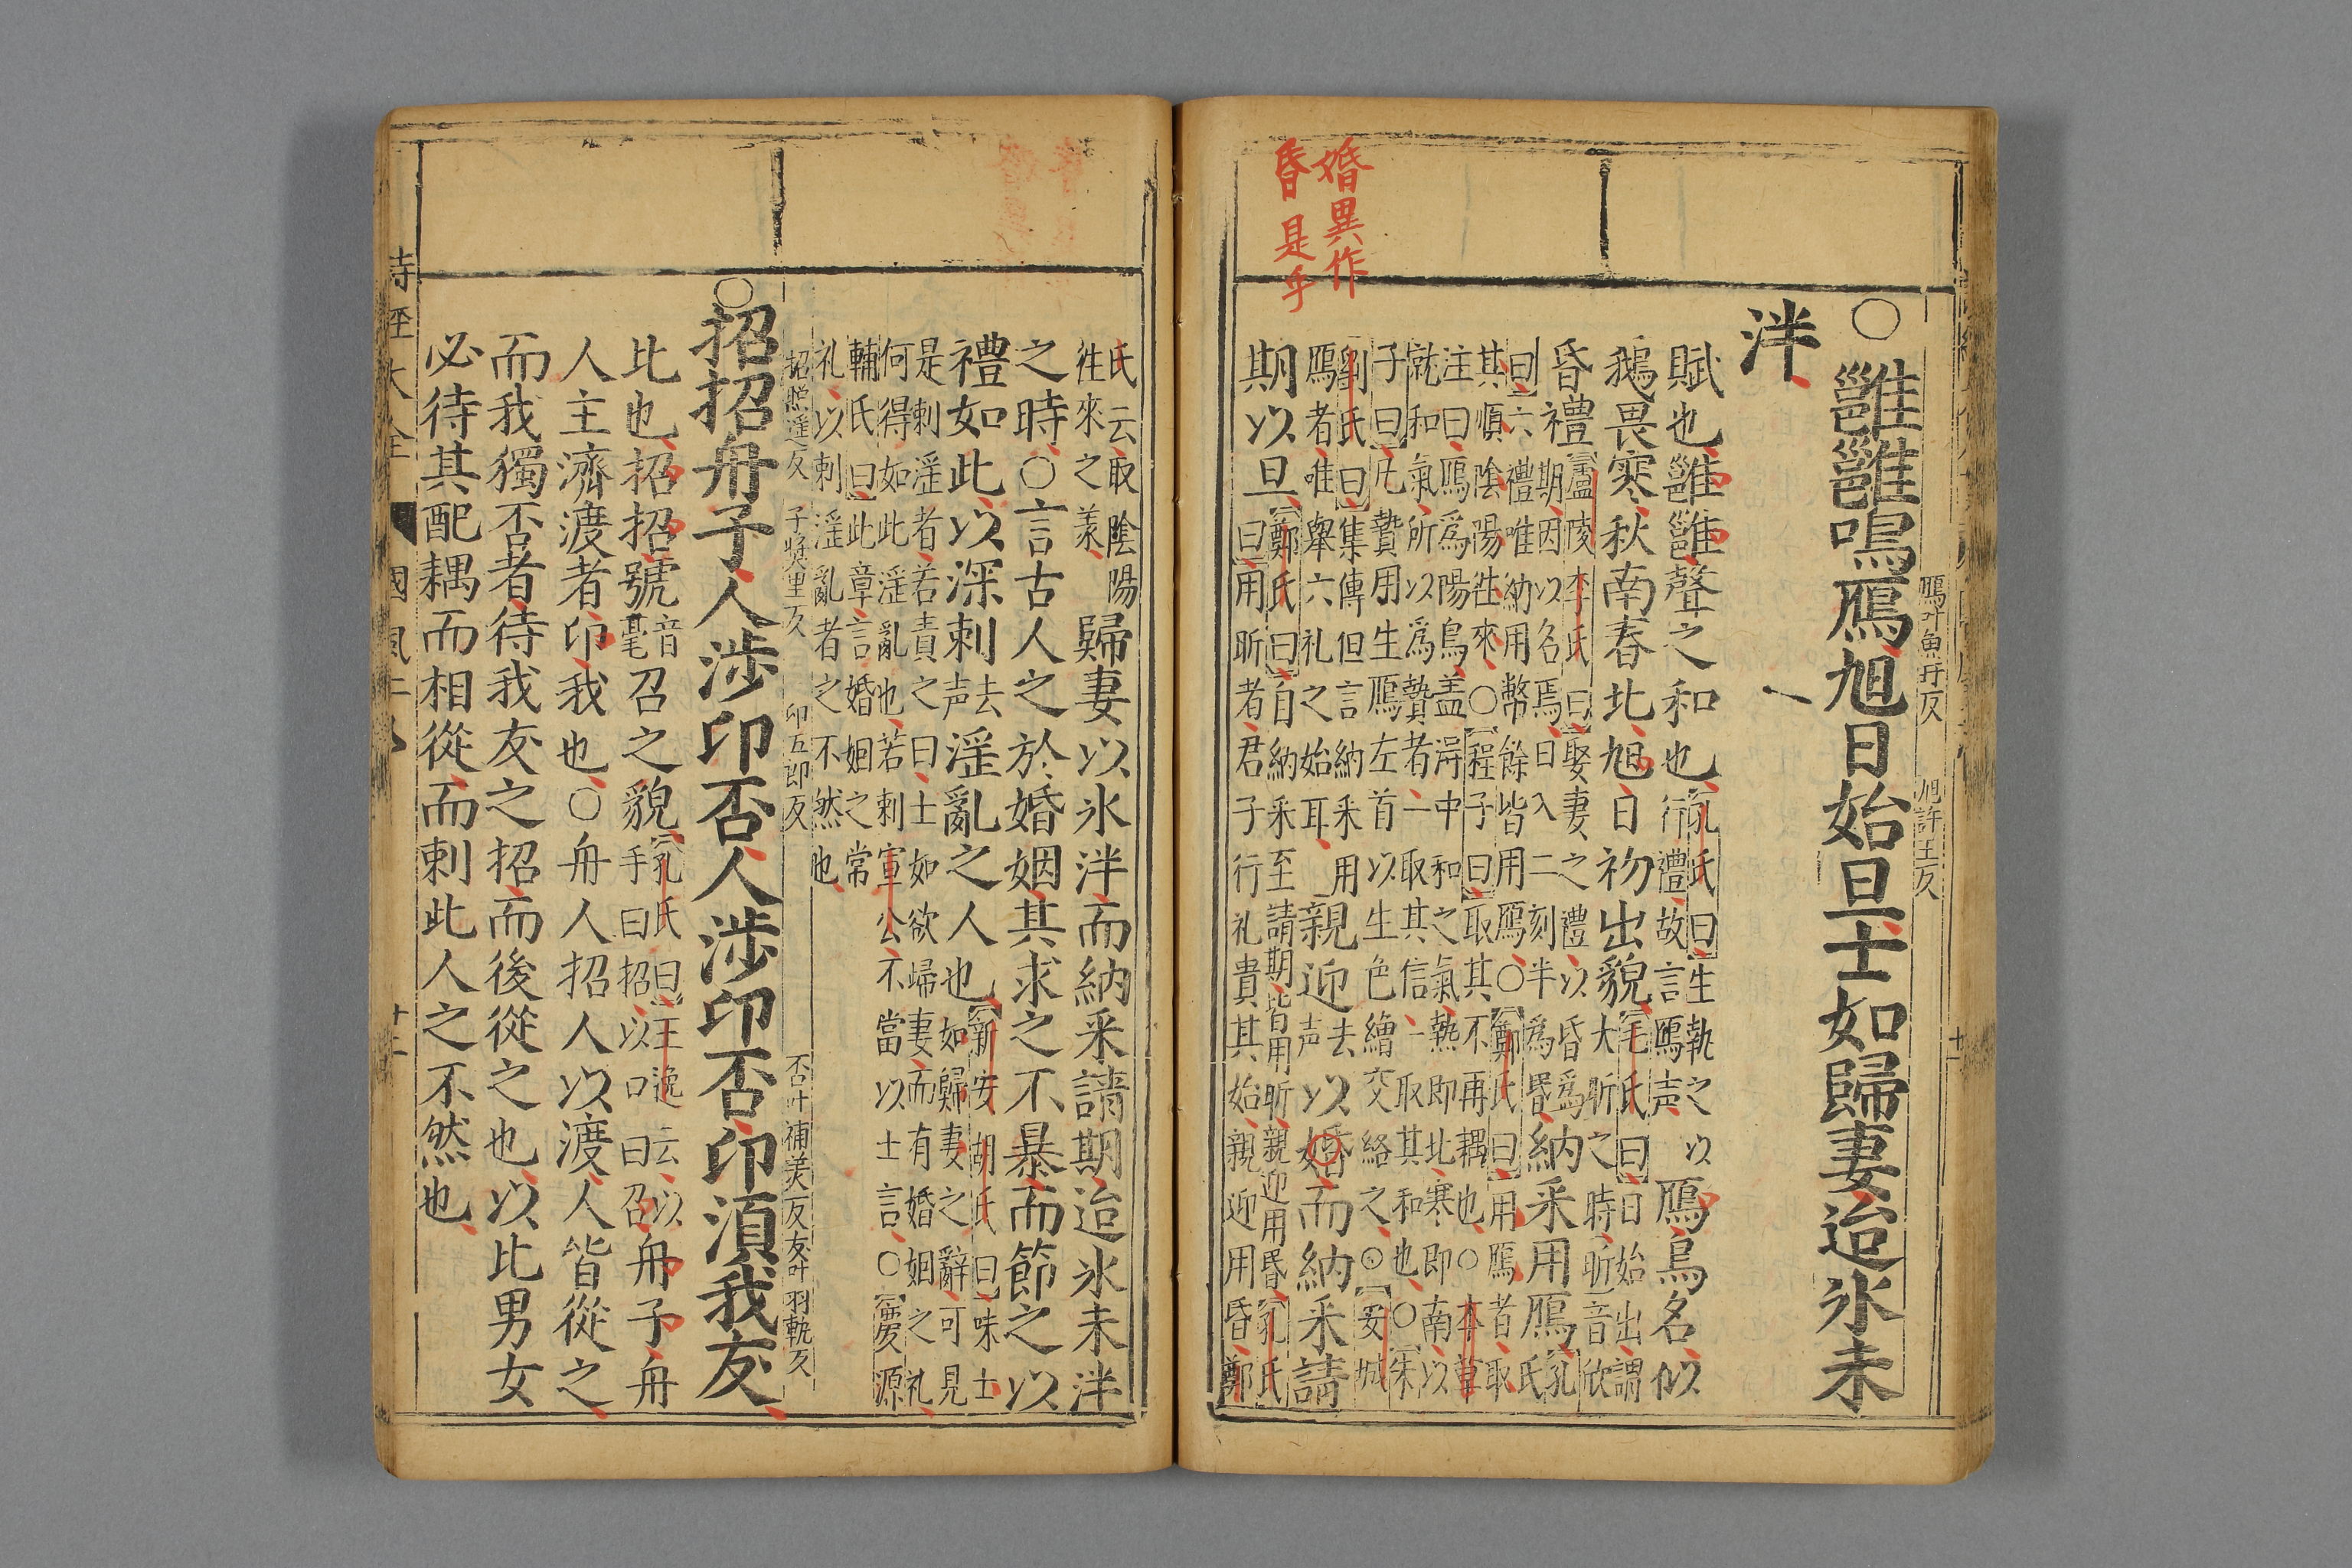 鴈叶魚玕反　旭許玉反
○雝雝鳴鴈旭日始旦士如歸妻迨氷未
泮
賦也雝雝聲之和也
孔氏曰生執之以
行禮故言鴈声
鴈鳥名似
鵝畏寒秋南春北旭日初出貌
毛氏曰日始出謂
大昕之時昕音欣
昏禮
廬陵李氏曰娶妻之禮以昏爲
期因以名焉日入二刻半爲昬
納采用鴈
孔氏
曰六禮唯納用幣餘皆用鴈○鄭氏曰用鴈者取
其順陰陽徃來○程子曰取其不再耦也○本草
注曰鴈爲陽鳥盖淂中和之氣熱即北寒即南以
就和氣所以爲贄者一取其信一取其和也○朱
子曰凡贄用生鴈左首以生色繒交絡之○安城
劉氏曰集傳但言納采用
鴈者唯舉六礼之始耳
親迎去声以婚而納采請
期以旦
鄭氏曰自納采至請期皆用昕親迎用昏孔氏
曰用昕者君子行礼貴其始親迎用昏鄭
婚異作
昏是乎
氏云取陰陽
徃來之義
歸妻以氷泮而納采請期迨氷未泮
之時○言古人之於婚姻其求之不暴而節之以
禮如此以深刺去声淫亂之人也
新安胡氏曰味士
如歸妻之辭可見
是刺淫者若責之曰士如欲歸妻而有婚姻之礼
何得如此淫亂也若刺宣公不當以士言○慶源
輔氏曰此章言婚姻之常
礼以刺淫亂者之不然也
招照遥反　子奬里反　卬五郎反　否叶補美反　友叶羽軌反
○招招舟子人涉卬否人涉卬否卬湏我友
比也招招號音毫召之貌
孔氏曰王逸云以
手曰招以口曰召
舟子舟
人主濟渡者卬我也○舟人招人以渡人皆從之
而我獨否者待我友之招而後從之也以比男女
必待其配耦而相從而刺此人之不然也
詩經大全　國風二　十二